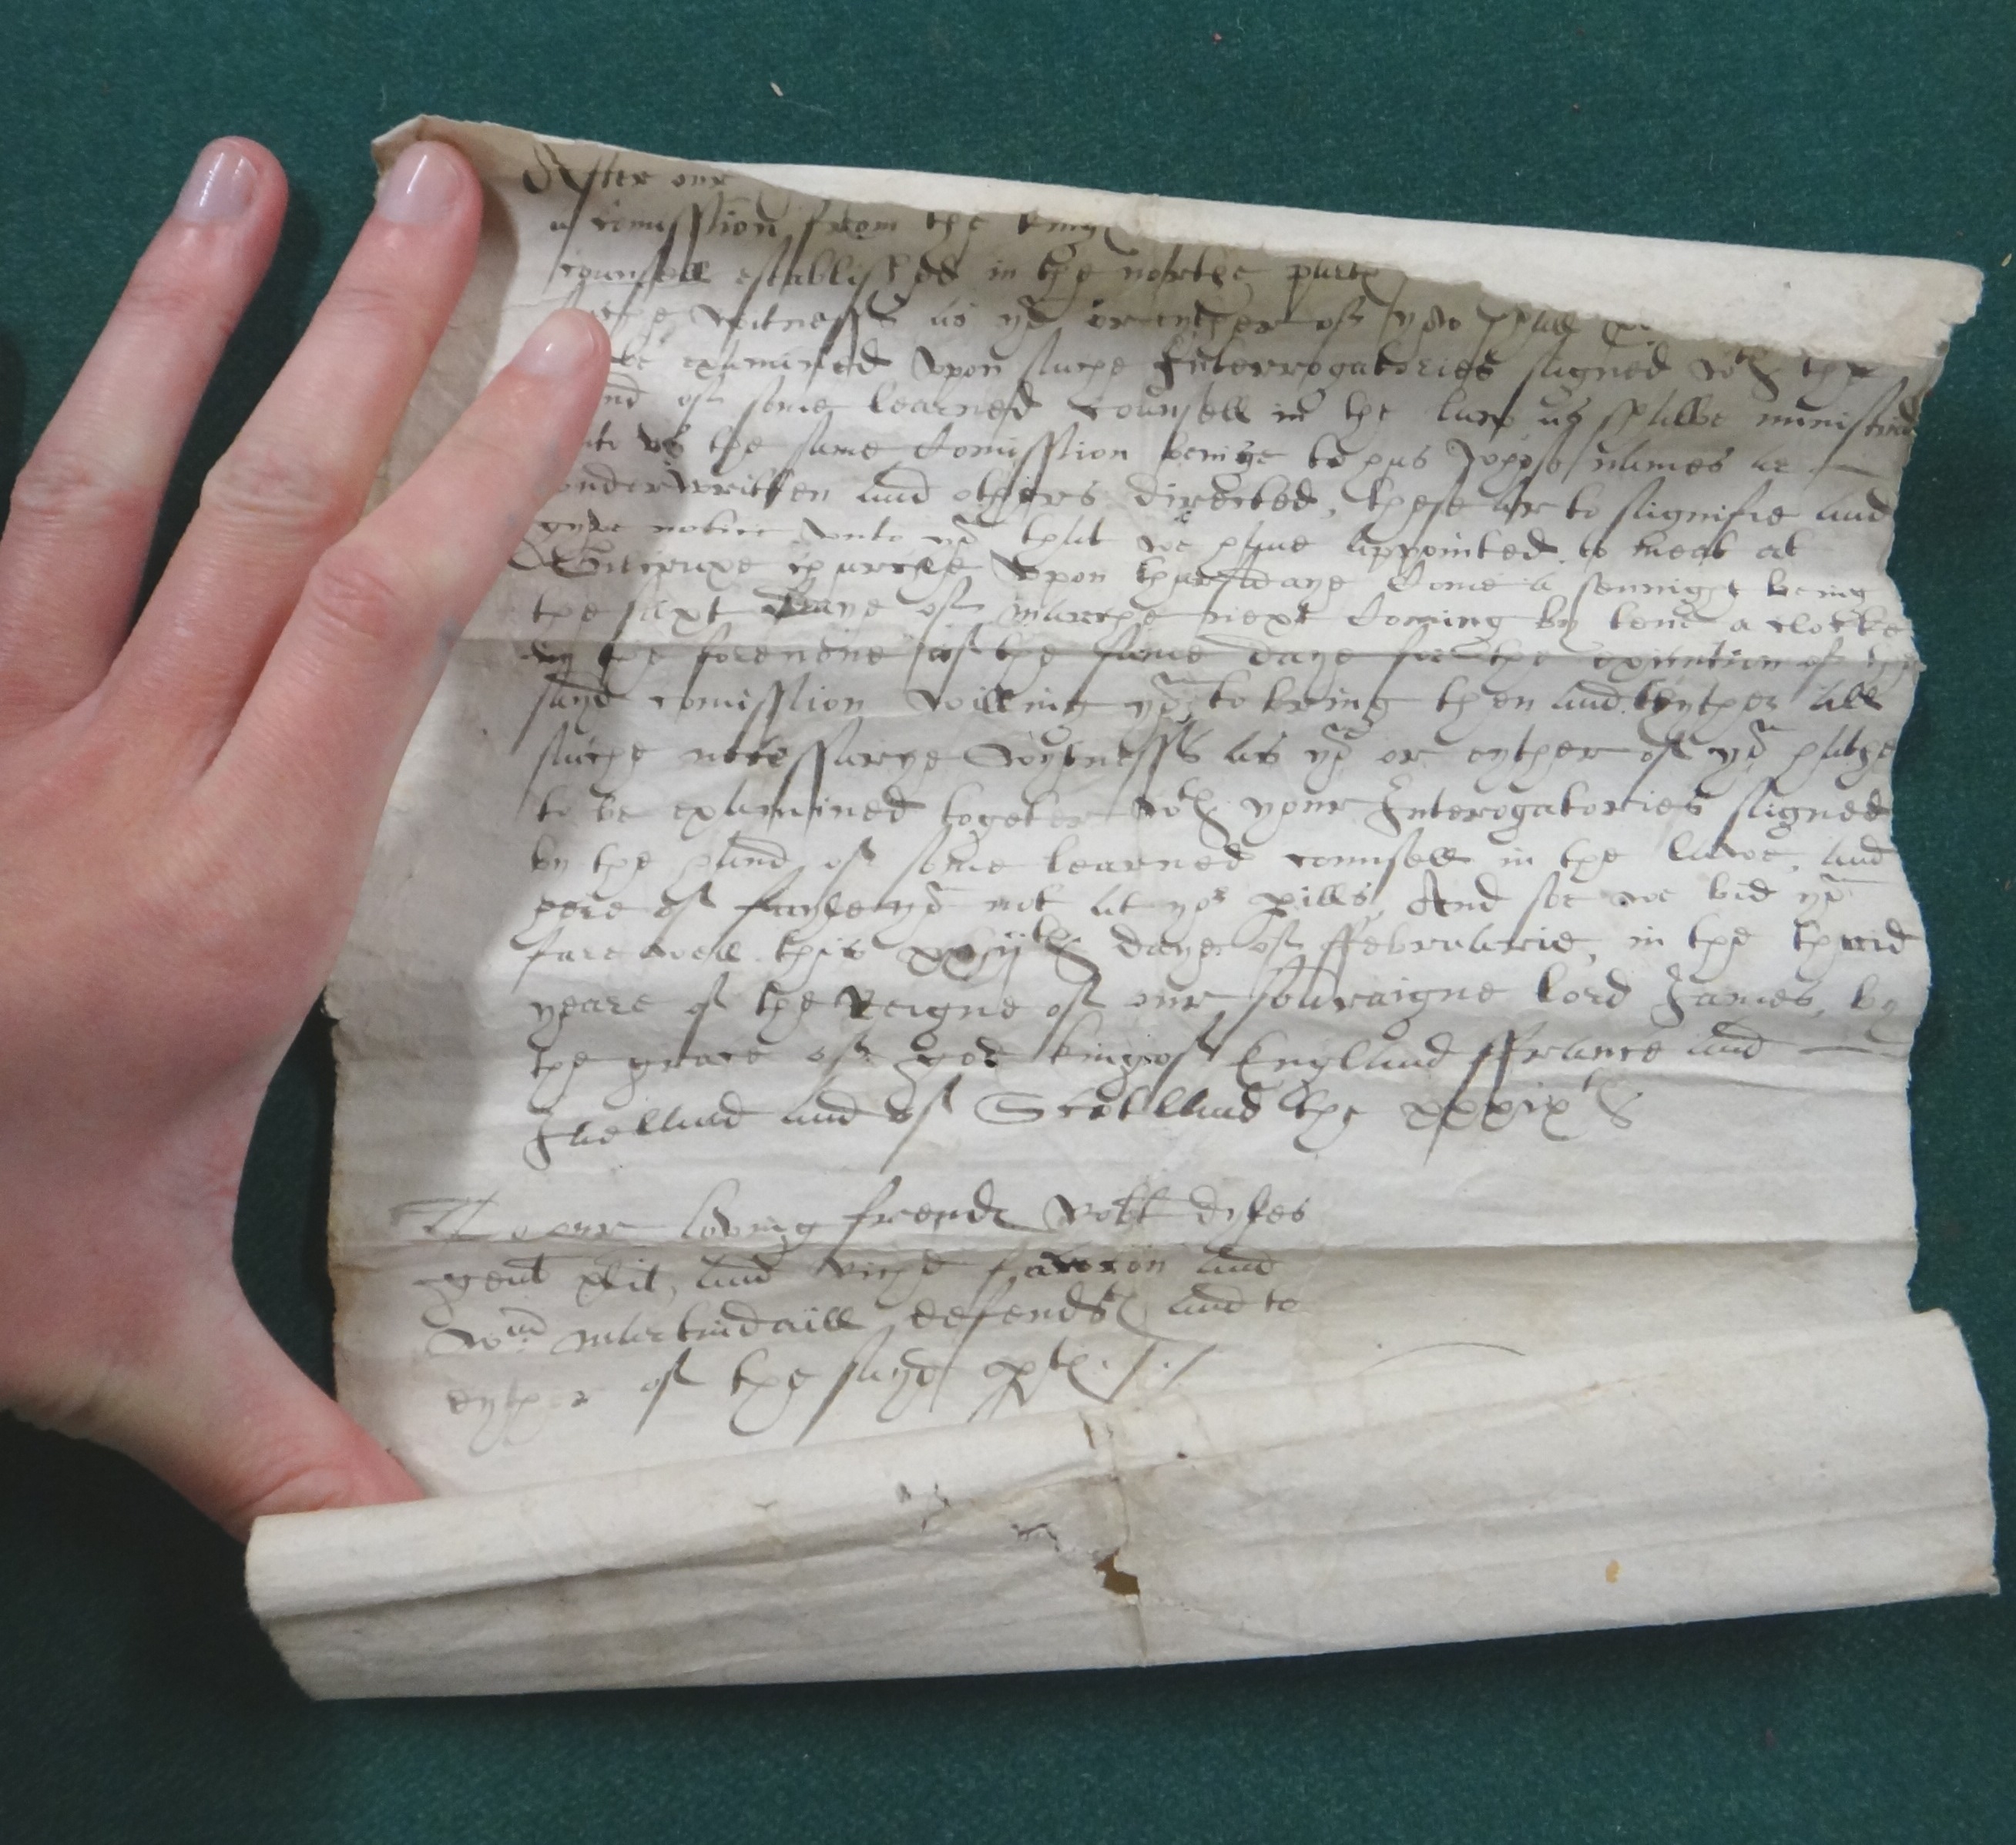 After our
a comission from the king
counsell established in the northe parte
witnesses as yo or eyther of yow shall
be examined upon suche Interrogatories signed wth the
of some learned counsell in the law as shalbe ministred
us the same Comission beinge to us whose names ar
underwritten and others directed, these ar to signifie and
gyve notice unto yo that we have appointed to meet at
churche upon thursdaye Come a sennight being
the sixt daye of marche next Coming by tene a clocke
in the forenone of the same daye for the execution of the
sayd comission willing yo to bring then and thyther all
suche necessarye wytnesses as yo or eyther of yo hathe
to be examined together wth your Interogatories signed
by the hand of some learned counsell in the lawe, and
here of fayle yo not at yor pills, And soe we bid yo
farewell this daye of ffebruarie, in the third
yeare of the Reigne of our soveraigne lord James, by
the grace of god king of England ffrance and
Ireland and of Scotland the xxxixth
To our loving frends Robt dykes
gent plt, and Richd and
Wm martindaill defendts and to
eyther of the sayd pts ././